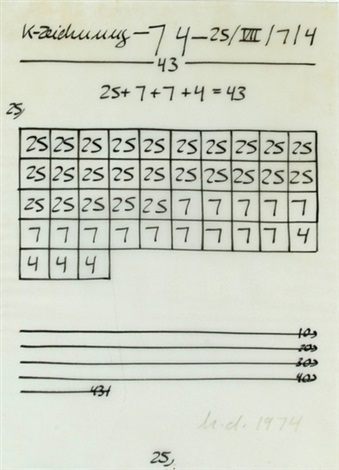 K-Zeichnung – 7 4 – 25/VII/7/4
43
25+7+7+4=43
25,
25 25 25 25 25 25 25 25 25 25
25 25 25 25 25 25 25 25 25 25
25 25 25 25 25 7 7 7 7 7
7 7 7 7 7 7 7 7 7 4
4 4 4
10,
20,
30,
40,
43,
h.d. 1974
25,